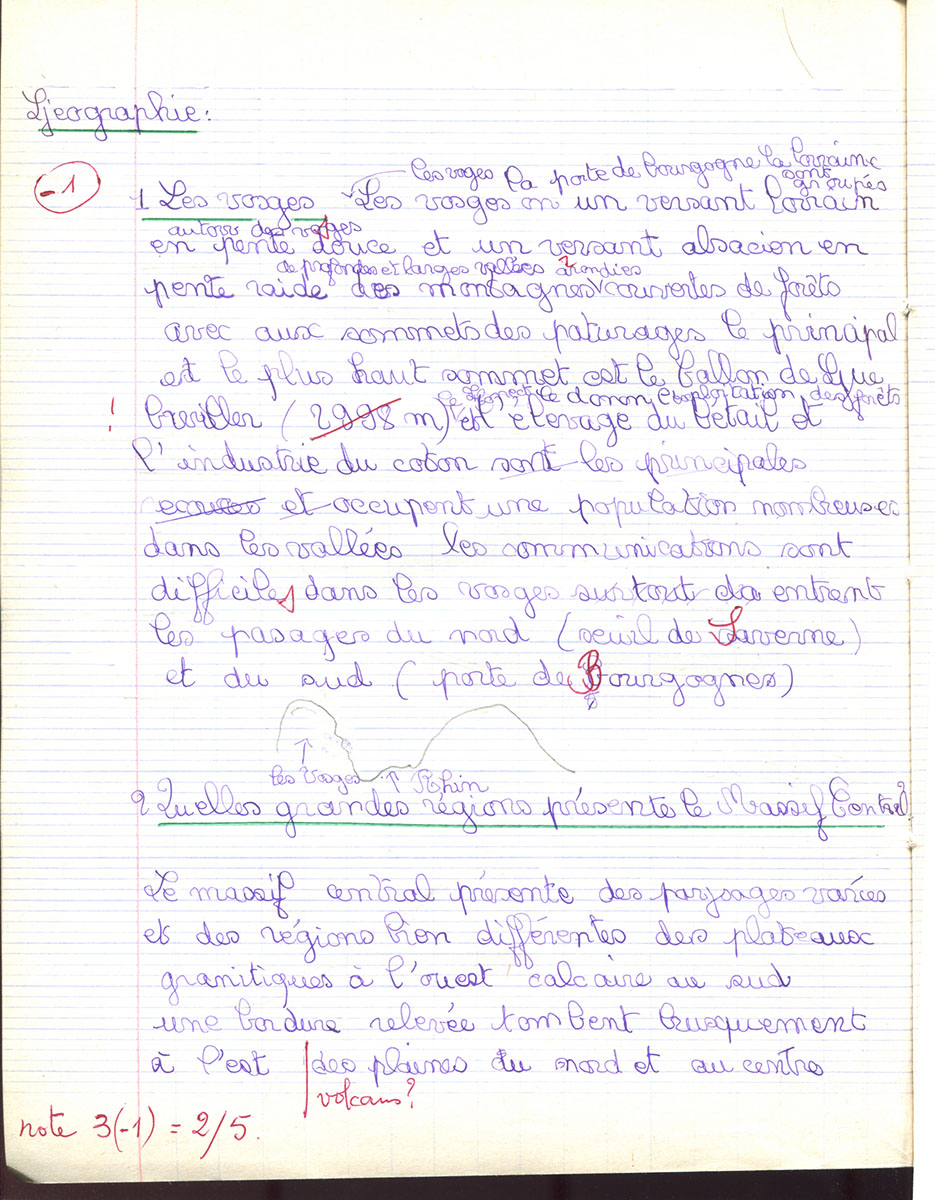 Géographie:
-1
les voges la porte de bourgogne la lorraine
sont
groupés
1 Les vosges Les vosges on un versant lorrain
autour des vosges
en pente douce et un versant alsacien en
de profondes et larges vallées arondies
pente raide des montagnes couvertes de forêts
avec aux sommets des paturages le principal
est le plus haut sommet est le ballon de Gue
le donon exploitation des forêts
! bwiller (2998 m) est élevage du bétail et
l'industrie du coton sont les principales
et occupent une population nombreuses
dans les vallées les communications sont
difficiles dans les vosges surtout entrent
les pasages du nord (seuil de Saverne)
et du sud (porte de Bourgognes)
les Vosges Rhin
2 Quelles grandes régions présente le Massif Central?
Le massif central présente des paysages variés
et des régions bien différentes des plateaux
granitiques à l'ouest calcaire au sud
une bordure relevée tombent brusquement
à l'est des plaines du nord et au centre
volcans?
note 3(-1) = 2/5.